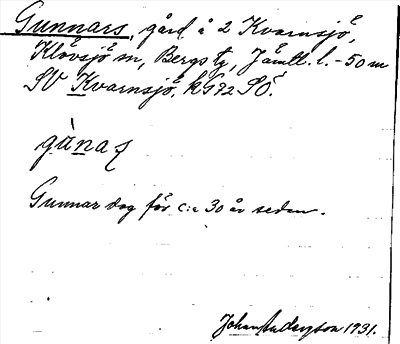 Gunnars, gård å 2 Kvarnsjö,
Klövsjö sn, Bergs tg, Jämtl. l. - 50 m
SV Kvarnsjö. kG72 SO.
gùnaʃ
Gunnar dog för c:a 30 år sedan.
Johan Anderson 1931.